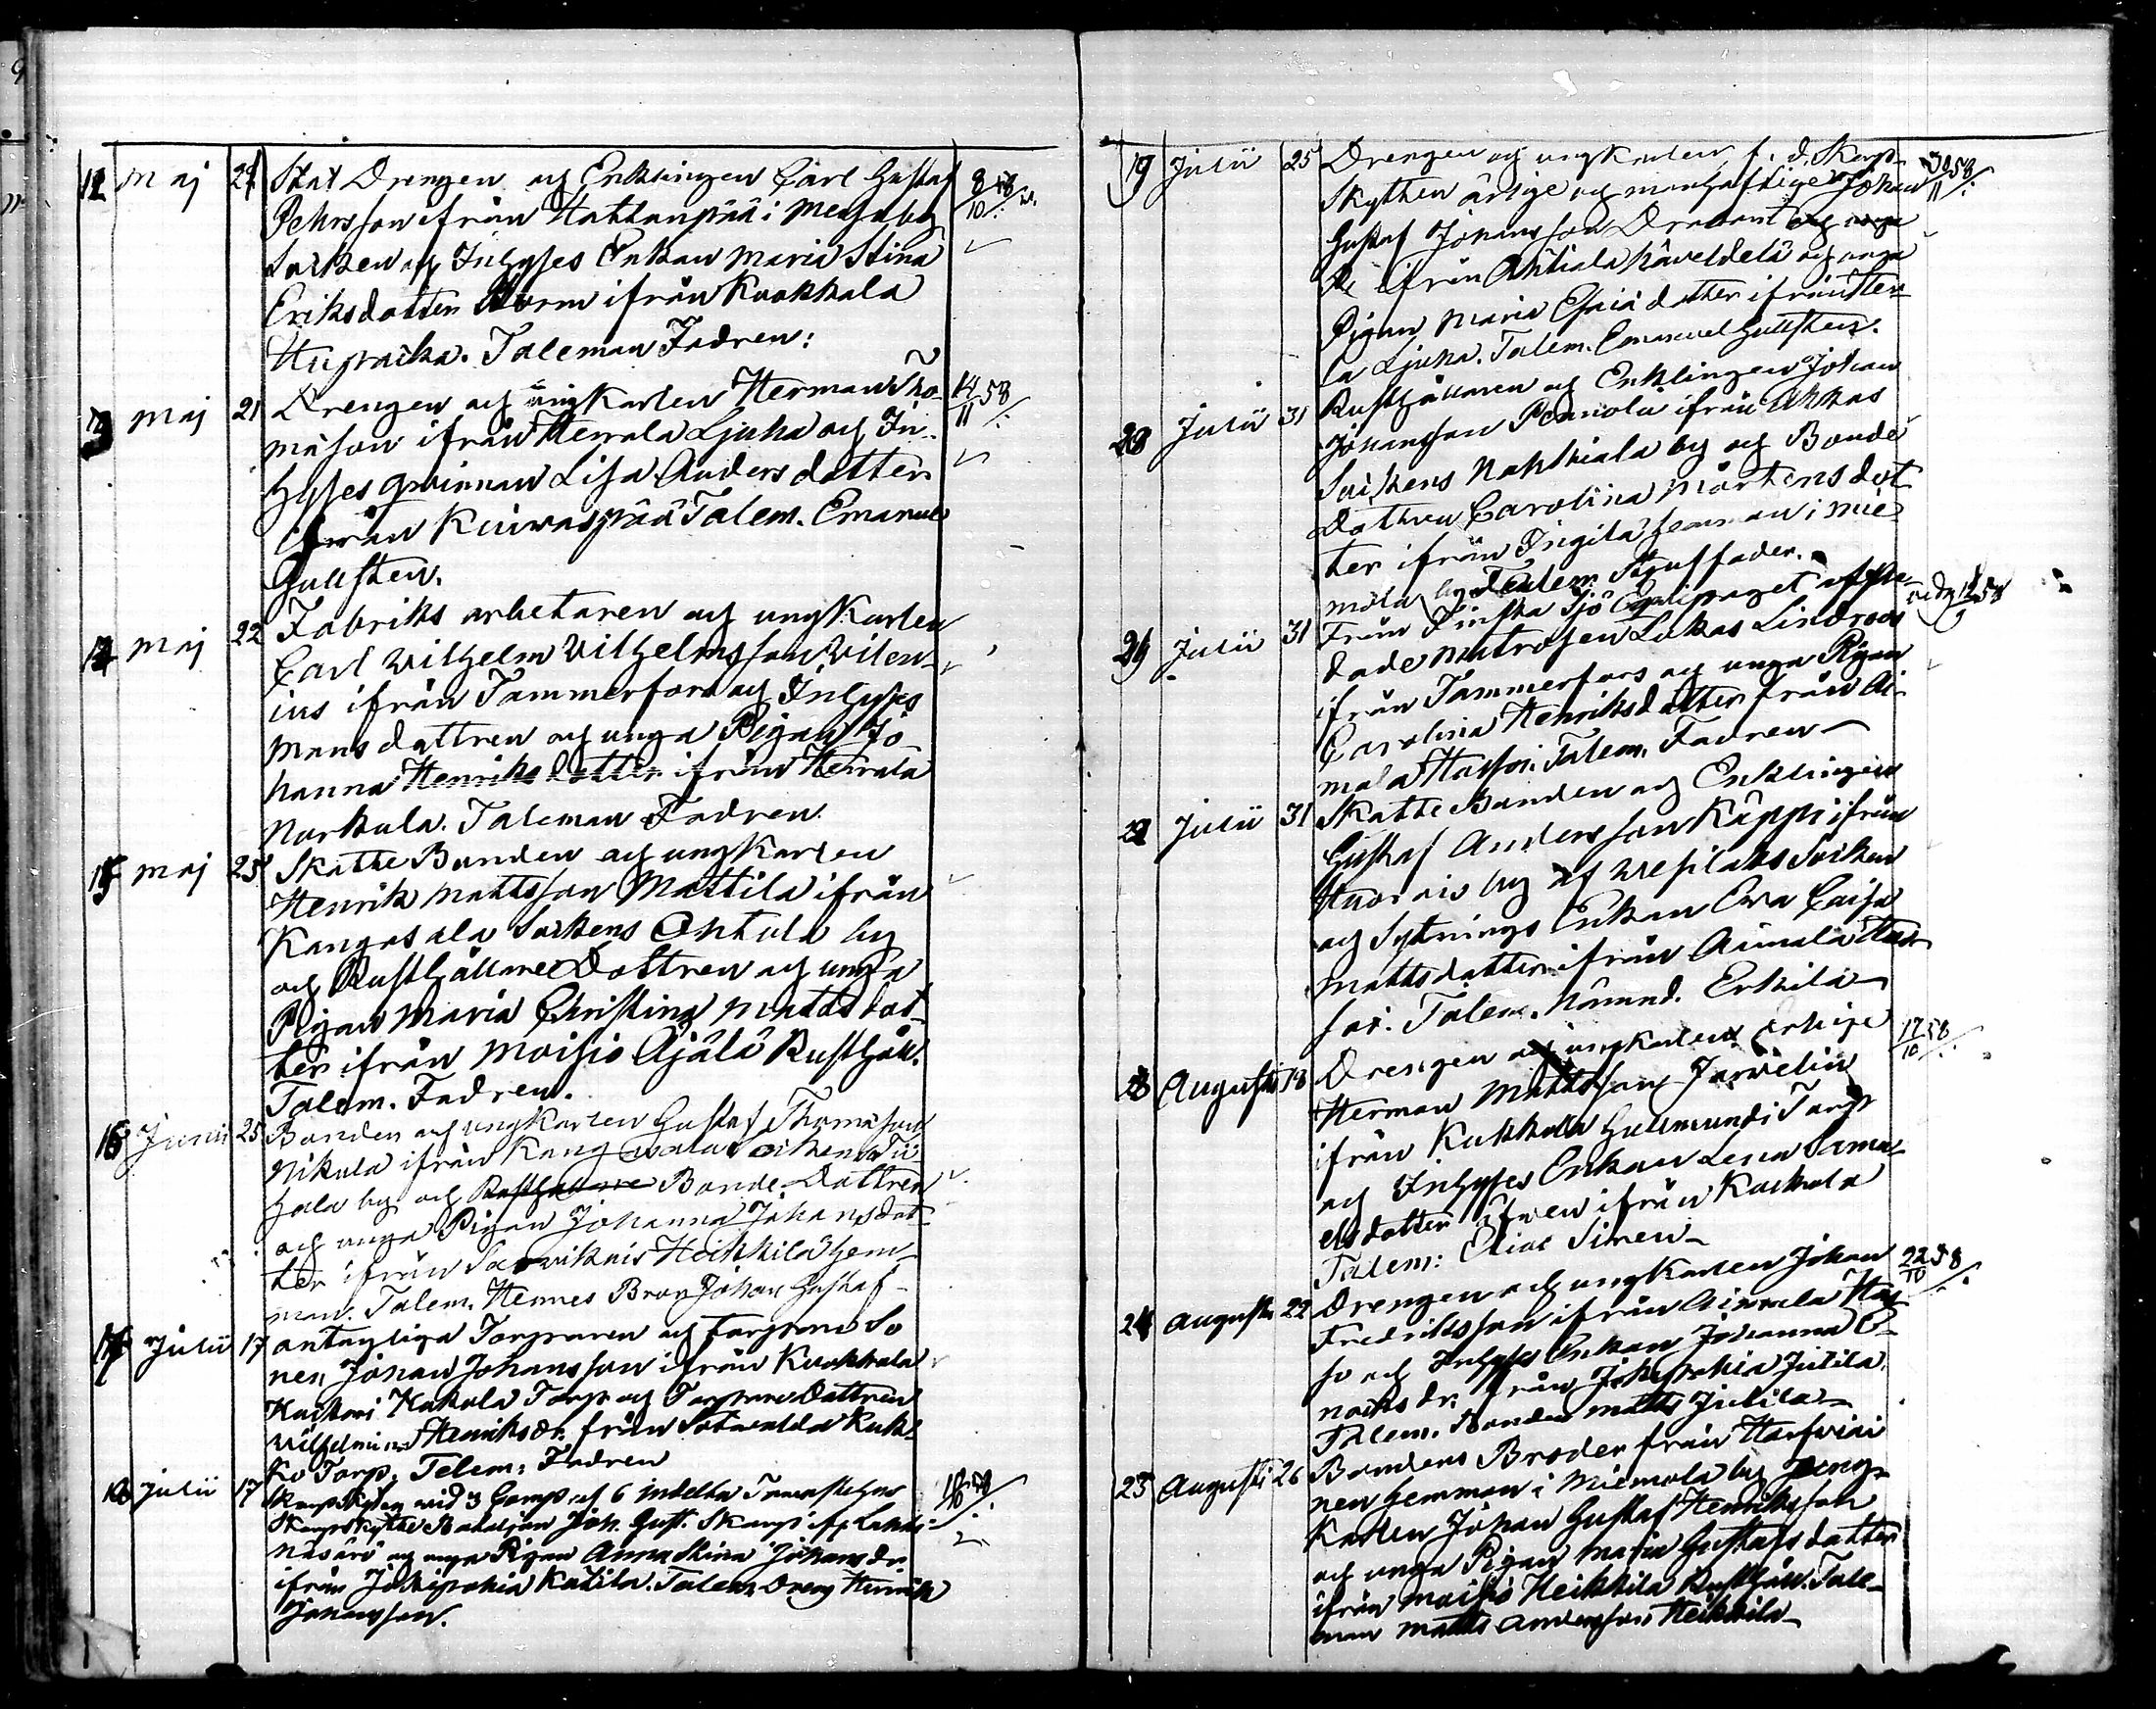 12 Maj 21 Stat Drengen og Enklingen Carl Gustaf 8/10 58
Pehrsson ifrån Hattanpää i Messuby
Socken og Inhyses Enkan Maria Stina
Eriksdotter Storm ifrån Kuokkala
Taleman Fadren:
13 Maj 21 Drengen og ungKarlen Herman Tho- 14/11 58
mason ifrån Herrala Ljuha og In-
hyses qvinnan Lisa Andersdotter
ifrån Talem. Emanuel
Gullsten.
14 Maj 22 Fabriks arbetaren og ungKarlen
Carl Wilhelm Wilhelmsson Wilen-
ius ifrån Tammerfors og Inhyses
mans dottren og unga Pigan Jo-
hanna Henriksdotter ifrån Herrala
Norkula. Taleman Fadren.
15 Maj 25 Skatte Bonden og ungKarlen
Henrik Mattsson Mattila ifrån
Kangasala Sockens by
och Rusthållare Dottren og unga
Pigan Maria Christina Mattsdot-
ter ifrån Moisio Äjälä Rusthåll.
Talem. Fadren.
16 Junii 25 Bonden och ungKarlen Gustaf Thomason
Nikula ifrån Kangasala Sockens
by och Rusthållare Bonde Dottren
och unga Pigan Johanna Johansdot-
ter ifrån Heikkilä hem-
man. Talem. Hennes Bror Johan Gustaf
17 Julii 17 antagliga Torparen og Torpare So
nen Johan Johansson ifrån Kuokkala
Kuckari Kakola Torp og Torpare Dottren
Wilhelmina Henriksdr. från
Torp. Talem: Fadren
18 Julii 17 Skarpskytten wid 3 Comp. af 6 indelta Tavastehus 58
Skarpskytte Bataljon Joh. Gust. Skarp
og unga Pigan Anna Stina Johansdr
ifrån Jokipohia Kutila. Talem. Dreng Henrik
Johansson.
19 Julii 25 Drengen og ungkarlen, f. d. Skarp- 30/11 58
Skytten ärlige og manhaftige Johan
Gustaf Johansson Drabant og unge
ifrån Ahtiala og unga
Pigan Maria Esaiädotter ifrån Her-
la Ljuha. Talem. Emanuel Gullsten.
20 Julii 31 Rusthållaren og Enklingen Johan
Johansson Pennola ifrån
Sockens by og Bonde
Dottren Carolina Mårtens dot
ter ifrån hemman i Mie-
mola by Talem Stuffader.
21 Julii 31 Från Finska Sjö Equipaget afske- 58
dade Matrosen Lukas Lindroos
ifrån Tammerfors og unga Pigan
Carolina Henriksdotter från Ai-
mala Hasso. Talem. Fadren
22 Julii 31 Skatte Bonden og Enklingen
Gustaf Andersson Käppi ifrån
by af Wesilaks Socken
og Sytnings Enkan Ewa Caisa
Mattsdotter ifrån Aimala Has
so. Talem. Nämnd. Erkilä
23 Augusti 18 Drengen og ungkarlen 17/10 58
Herman Mattsson Jarvelin
ifrån Kukkola Torp
og Inhyses Enkan Lena Samu-
elsdotter äfven ifrån Kuckola
Talem: Elias Siren
24 Augusti 22 Drengen och ungKarlen Johan 22/10 58
Fredriksson ifrån Aimala Has
so och Inhyses Enkan Johanna E-
noksdr. från Jokipohia Jutila.
Talem. Bonden Matts Jutila
25 Augusti 26 Bondens Broder från Harfwiai
nen hemman i Miemola by ung-
Karlen Johan Gustaf Henriksson
och unga Pigan Maria Gustafsdotter
ifrån Moisio Heikkilä Rusthåll. Tale-
man Matts Andersson Heikkilä